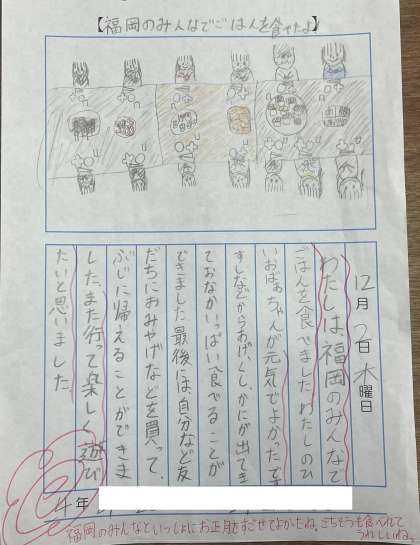 【福岡のみんなでごはんを食べたよ】
12月2日 木曜日
わたしは、福岡のみんなで
ごはんを食べました。わたしのひ
いおばあちゃんが元気でよかったです
すしなどからあげ、くし、かにが出てき
ておなかいっぱい食べることが
できました。最後には、自分など友
だちにおみやげなどを買って、
ぶじに帰えることができま
した。また行って楽しく遊び
たいと思いました
4年
福岡のみんなといっしょにお正月をすごせてよかったね。ごちそうも食べれて
うれしいね。